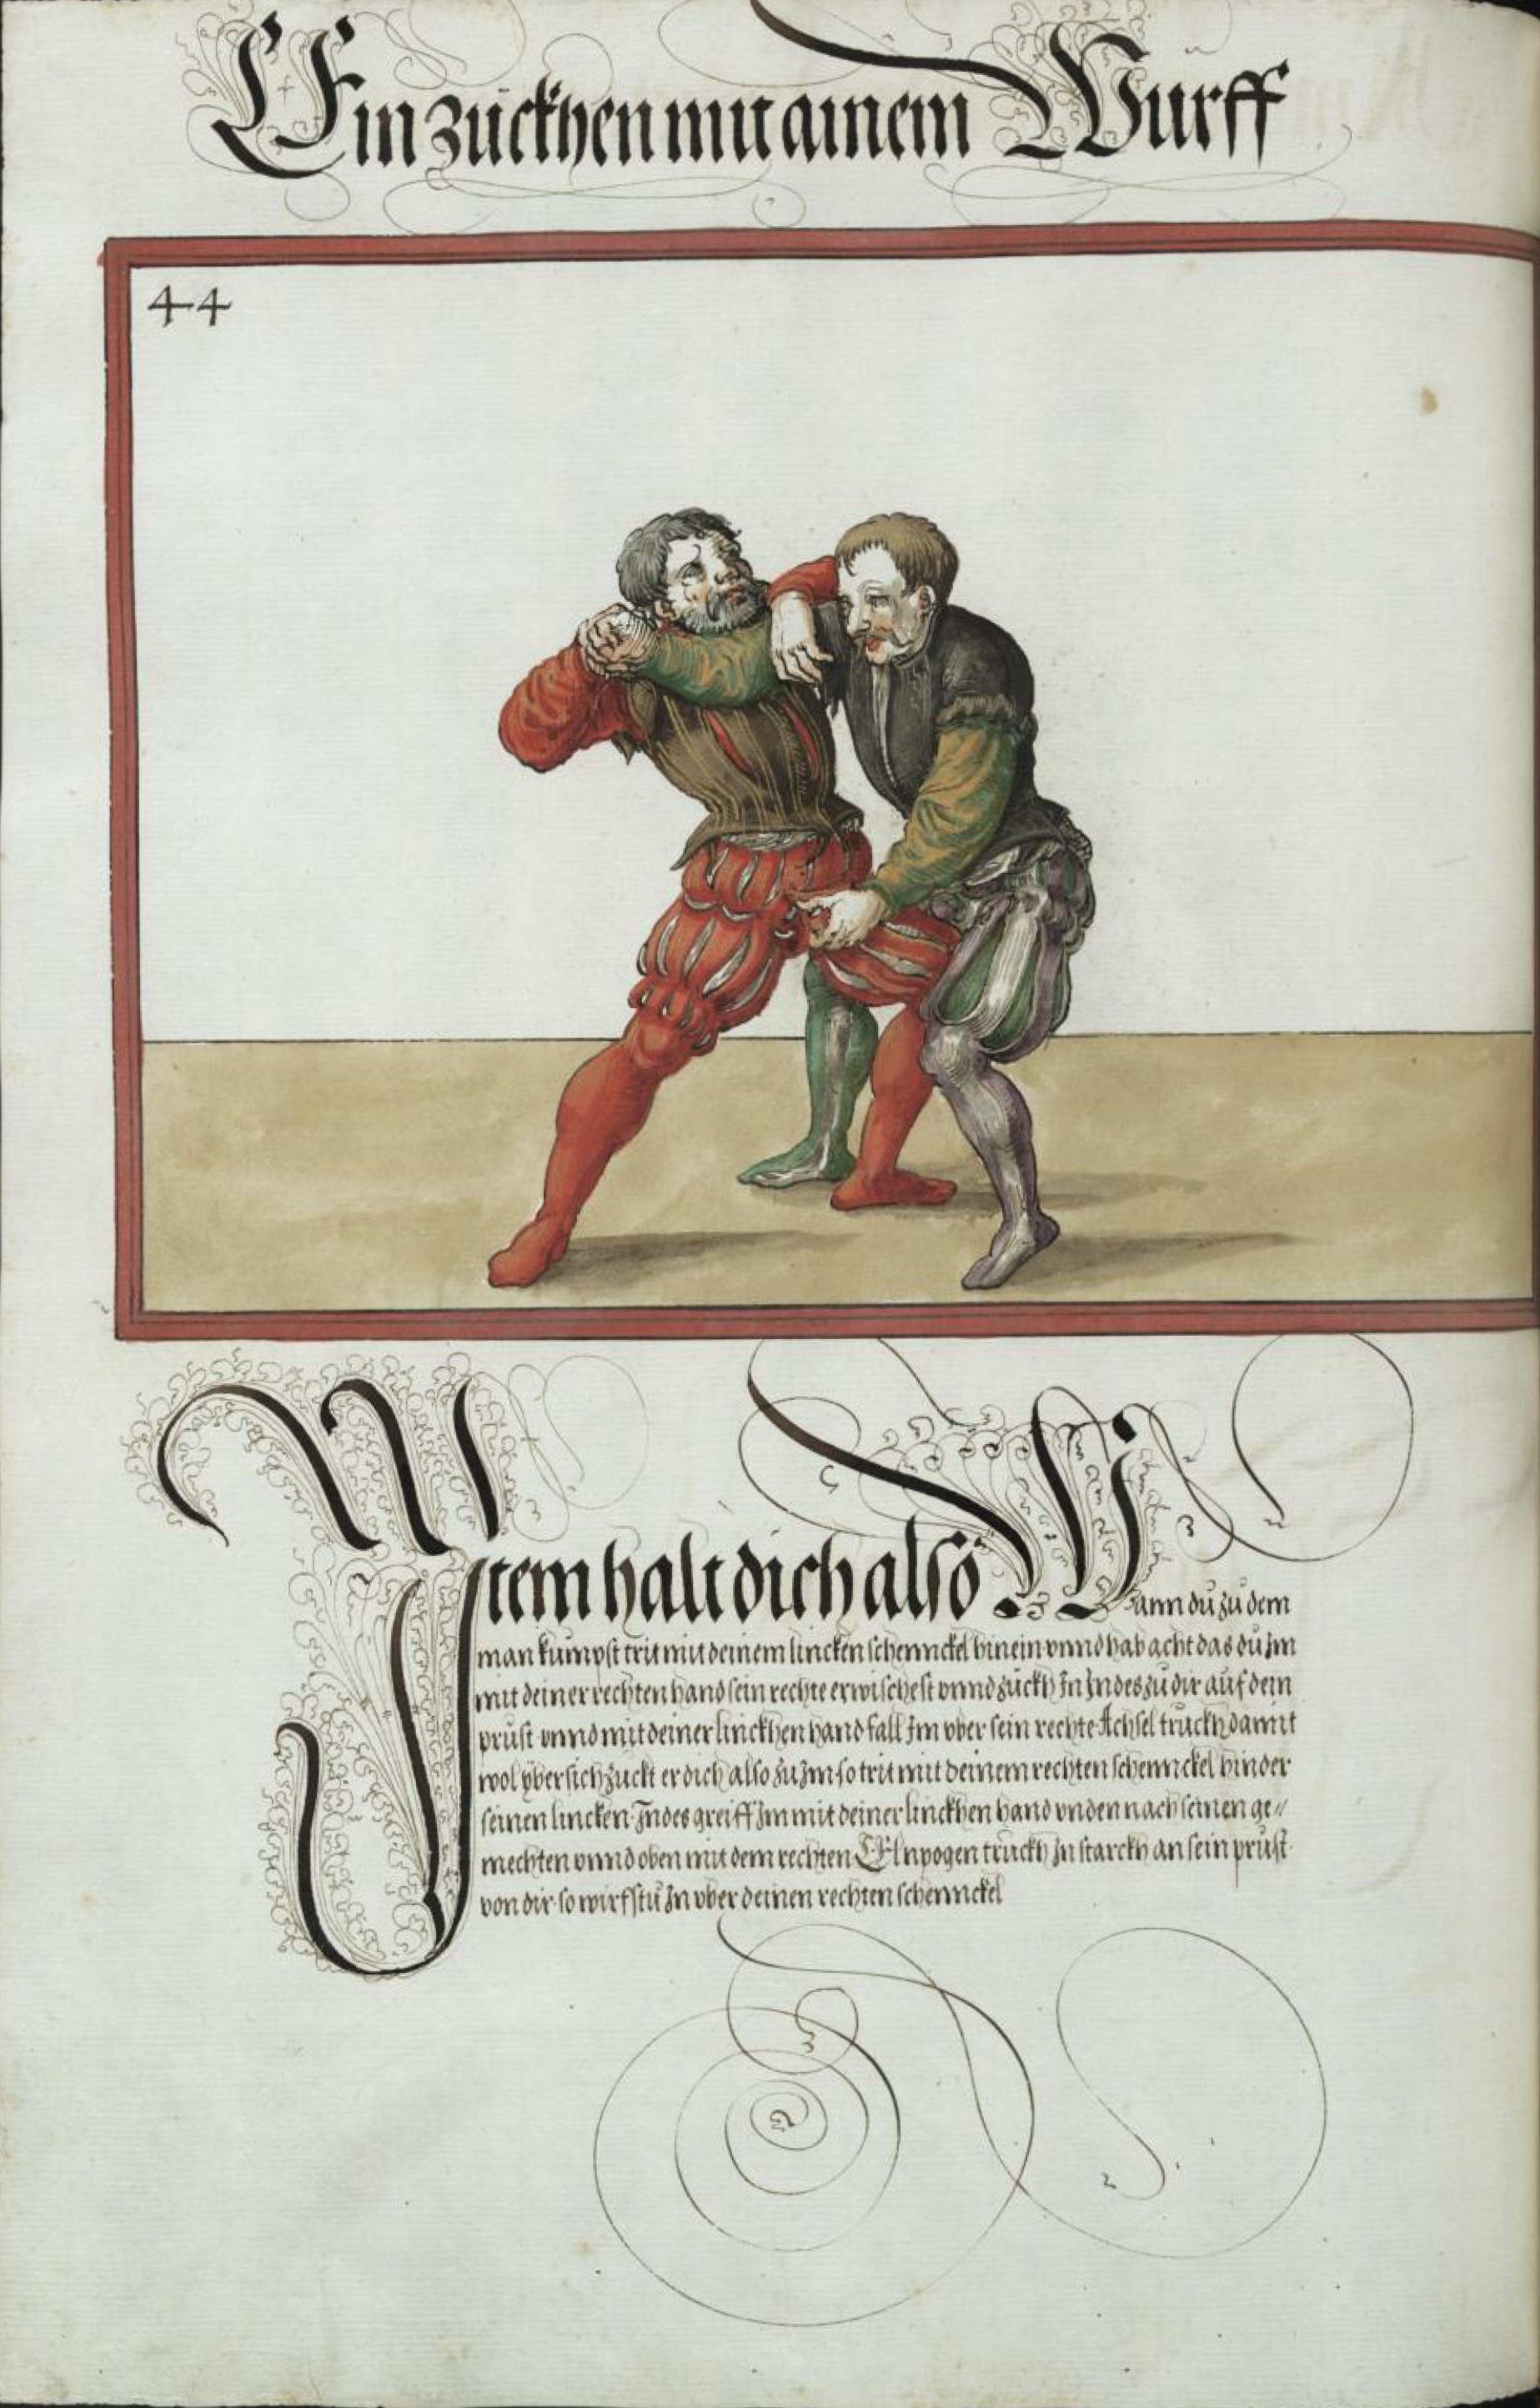 Ein zuckhen mit ainem Wurff
44
Item halt dich also Wann du zu dem
man kumpst trit mit deinem lincken schennckel hinein vnnd hab acht das du Im
mit deiner rechten hand sein rechte erwischest vnnd zuckh In Indes zu dir auf dein
prust vnnd mit deiner linckhen hand fall Im vber sein rechte Achsel truckh damit
wol ybersich zuckt er dich also zu Im so trit mit deinem rechten schennckel hinder
seinen lincken Indes greiff Im mit deiner linckhen hand vnden nach seinen ge//
mechten vnnd oben mit dem rechten Elnpogen truckh In starckh an sein prust
von dir so wirfstu In vber deinen rechten schennckel